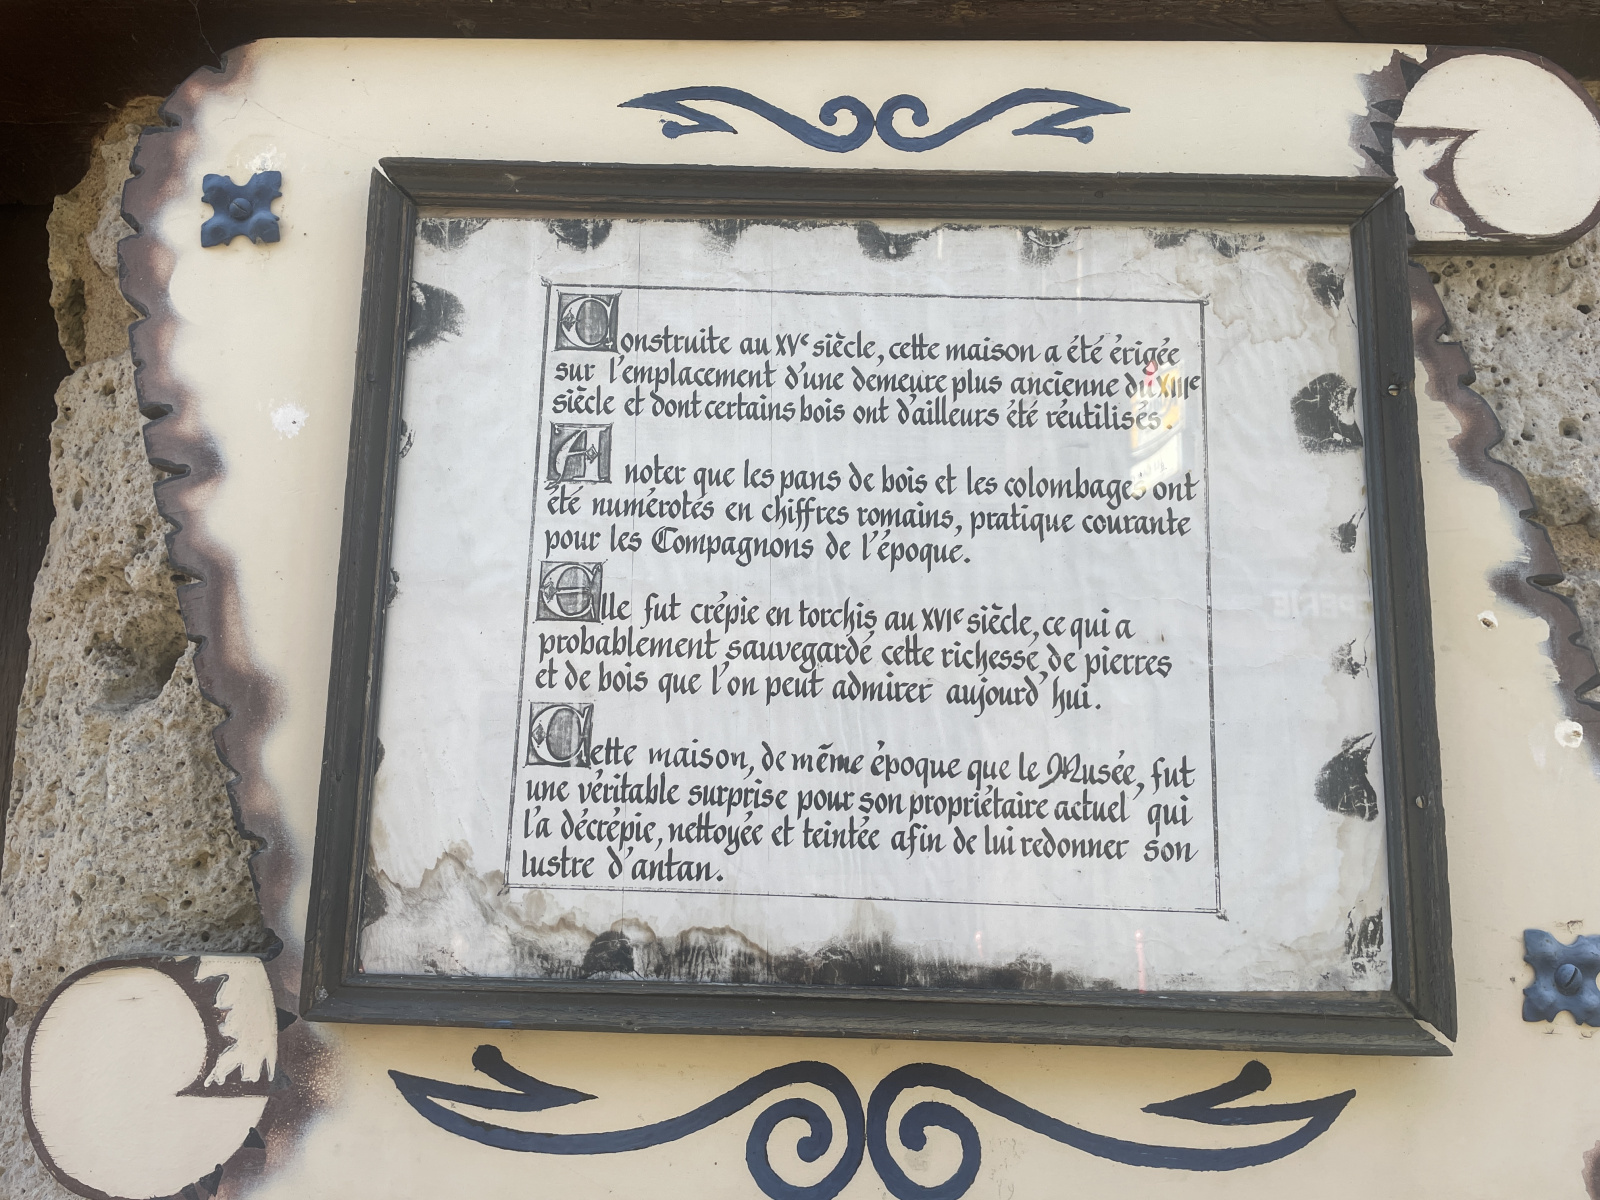 Construite au XVe siècle, cette maison a été érigée
sur l'emplacement d'une demeure plus ancienne du XIIIe
siècle et dont certains bois ont d'ailleurs été réutilisés.
A noter que les pans de bois et les colombages ont
été numérotés en chiffres romains, pratique courante
pour les Compagnons de l'époque.
Elle fut crépie en torchis au XVIe siècle, ce qui a
probablement sauvegardé cette richesse de pierres
et de bois que l'on peut admirer aujourd'hui.
Cette maison, de même époque que le Musée, fut
une véritable surprise pour son propriétaire actuel qui
l'a décrépie, nettoyée et teintée afin de lui redonner son
lustre d'antan.